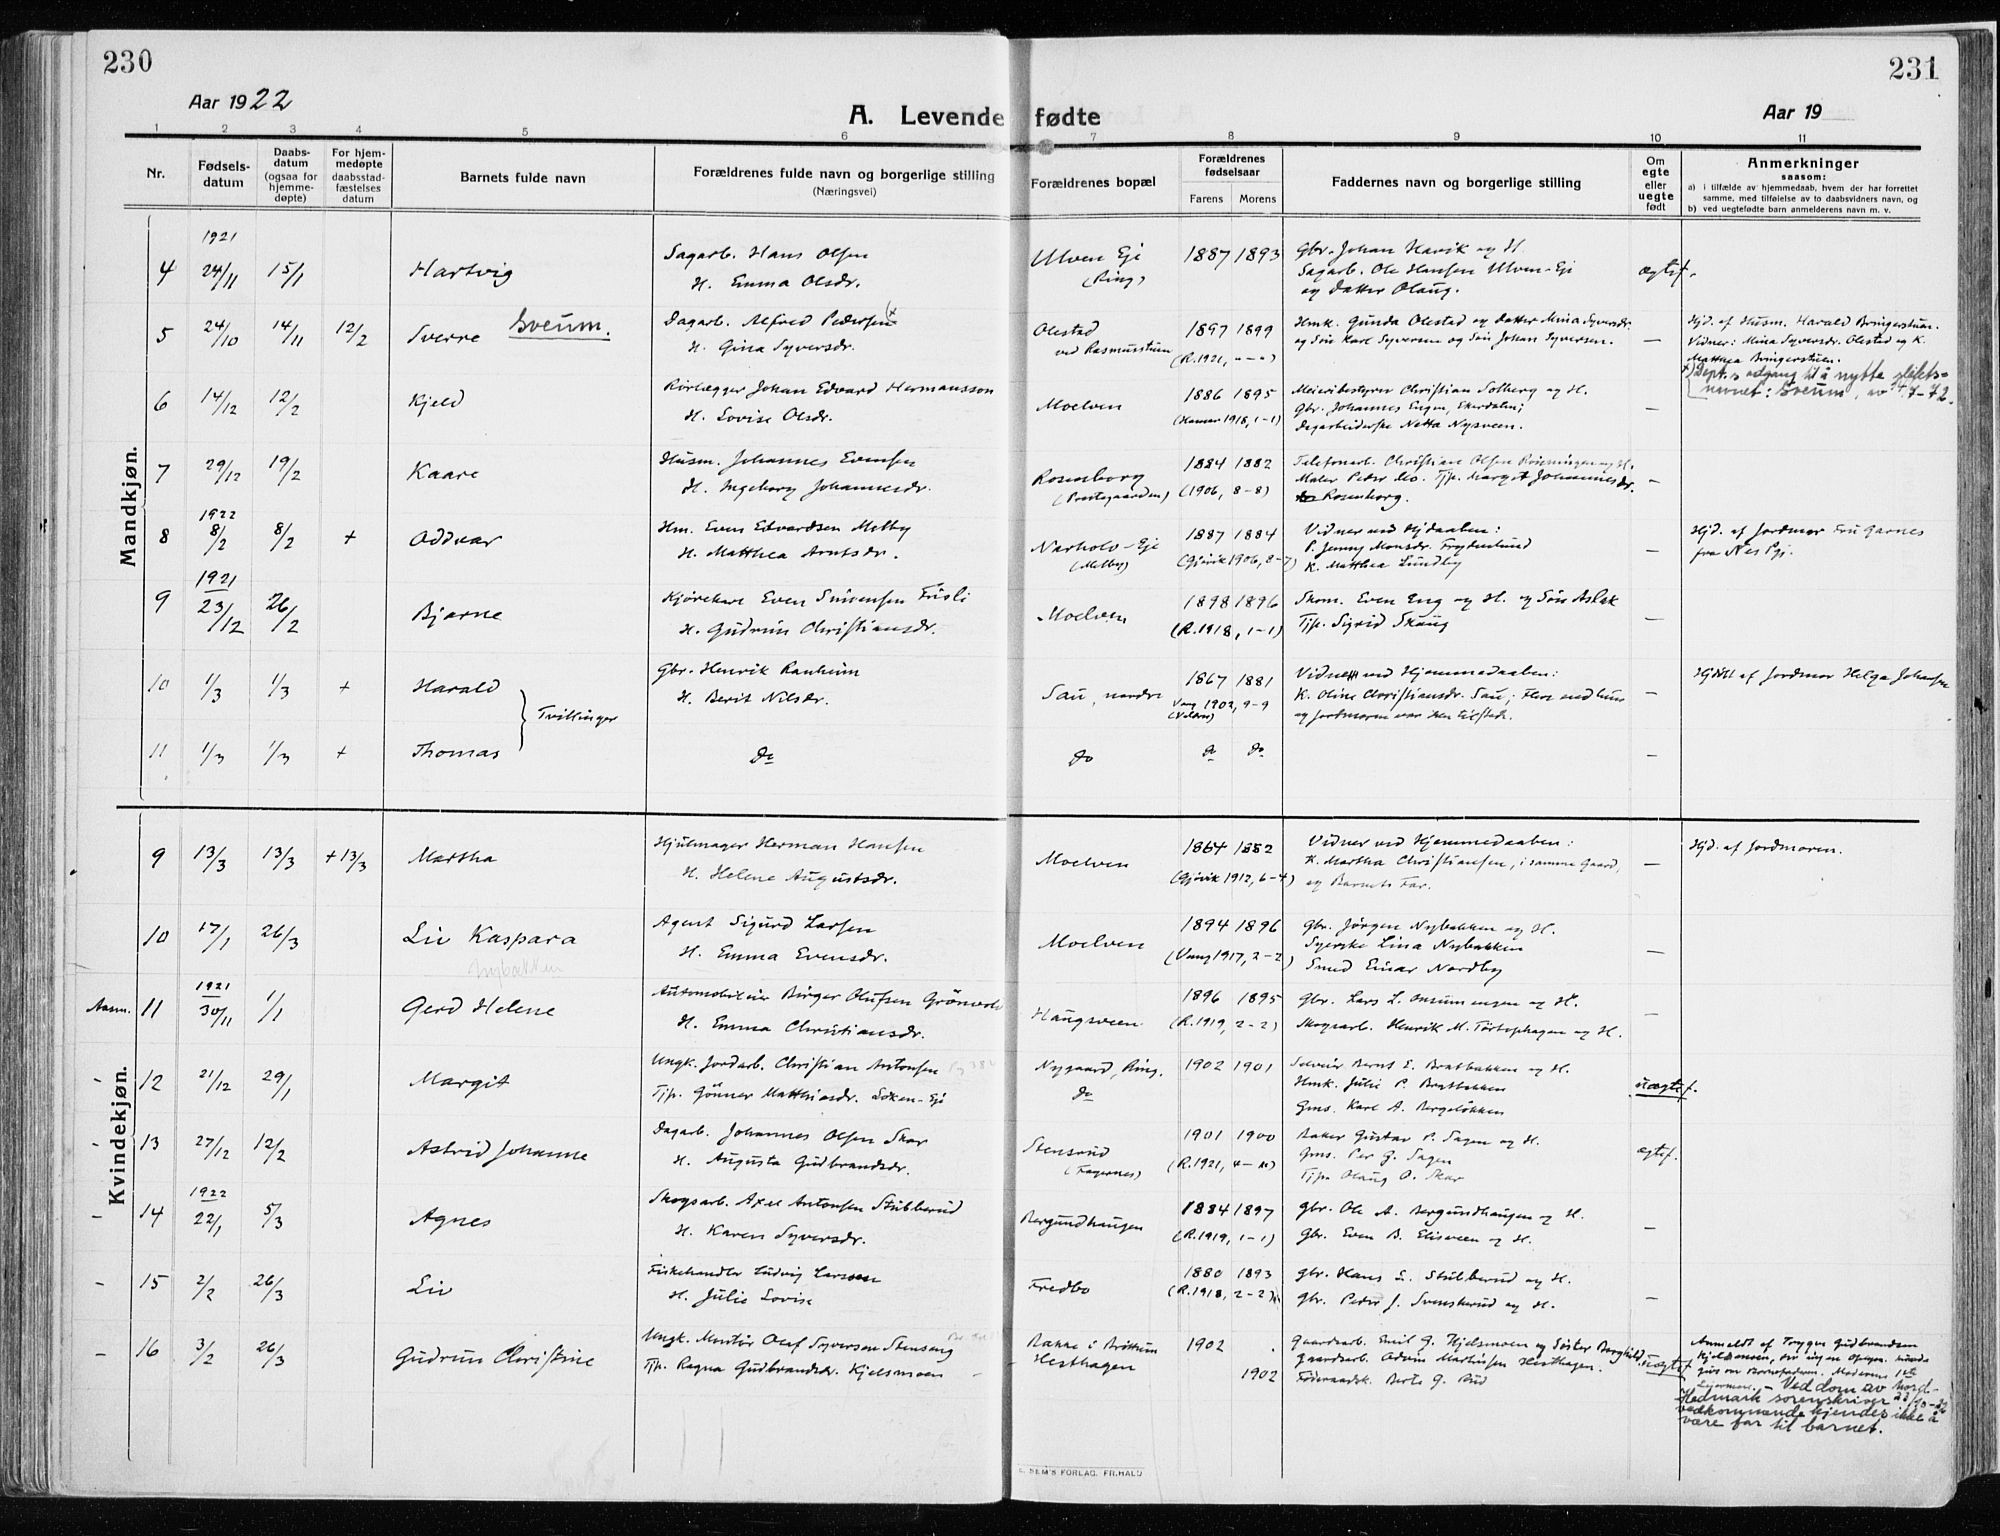 230
231
Aar 1922
A. Levende fødte
Aar 19
1 2 3 4 5 6 7 8 9 10 11
Nr.
Fødsels-
datum
Daabs-
datum
(ogsaa for
hjemme-
døpte)
For hjem-
medøpte
daabsstad-
fæstelses
datum
Barnets fulde navn
Forældrenes fulde navn og borgerlige stilling
(Næringsvei)
Forældrenes bopæl
Forældrenes
fødselsaar
Farens Morens
Faddernes navn og borgerlige stilling
Om
egte
eller
uegte
født
Anmerkninger
saasom:
a) i tilfælde av hjemmedaab, hvem der har forrettet
samme, med tilføielse av to daabsvidners navn, og
b) ved uegtefødte barn anmelderens navn m. v.
Mandkjøn.
1921
4 24/11 15/1 Hartvig
Sagarb. Hans Olsen
H. Emma Olsdr.
Ulven Eje
(Ring)
1887 1893
Gbr. Johan Havik og H.
Sagarb. Ole Hansen Ulven-Eje
og Datter Olaug.
ægtef.
5 24/10 14/11 12/2 Sverre Sveum.
Dagarb. Alfred Pedersen (x
H. Gina Syversdr.
Olestad
ved Rasmusstuen
1897 1899
(R. 1921, „-„)
Hmk. Gunda Olestad og Datter Mina Syversdr.
og Søn Karl Syversen og Søn Johan Syversen.
—
Hjd. af Husm. Harald Bringerstuen.
Vidner: Mina Syversdr. Olestad og K.
Matthea Bringerstuen.
x) Dept.s adgang til å nytte slekts-
navnet: Sveum, av 4/7-72.
6 14/12 12/2 Kjeld
Rørlægger Johan Edvard Hermansson
H. Lovise Olsdr.
Moelven
1886 1895
(Hamar 1918, 1-1)
Meieribestyrer Christian Solberg og H.
Gbr. Johannes Engen, Ekerdalen;
Dagarbeiderske Netta Nysveen.
—
7 29/12 19/2 Kaare
Husm. Johannes Evensen
H. Ingeborg Johannesdr.
Rosenborg
(Prestegaarden)
1884 1882
(1906, 8-8)
Telefonarb. Christian Olsen Røiemingen og H.
Maler Peder Mo. Tjp. Margit Johannesdr.
Rosenborg.
—
1922
8 8/2 8/2 + Oddvar
Hm. Even Edvardsen Melby
H. Matthea Arntsdr.
Narholo-Eje
(Melby)
1887 1884
(Gjøvik 1906, 8-7)
Vidner ved Hjdaaben:
P. Jenny Monsdr. Frydenlund
K. Matthea Lundby
—
Hjd. af Jordmor Fru Garnes
fra Nes Pgj.
1921
9 23/12 26/2 Bjarne
Kjørekare Even Simensen Fusli
H. Gudrun Christiansdr.
Moelven
1898 1896
(R. 1918, 1-1)
Skom. Even Eng og H. og Søn Aslak
Tjp. Sigrid Skaug
10 1/3 1/3 + Harald
Gbr. Henrik Ranheim
H. Berit Nilsdr.
Sau, nordre
1867 1881
Vang 1902, 9-9
(Valdres)
Vidne ved Hjemmedaaben:
K. Oline Christiansdr. Sau; Flere end hun
og Jordmoren var ikke tilstede.
—
Hjdøbt af Jordmor Helga Johansen
} Tvillinger
11 1/3 1/3 + Thomas
do
do
do do
—
Kvindekjøn.
9 13/3 13/3 +13/3 Martha
Hjulmager Herman Hansen
H. Helene Augustsdr.
Moelven
1864 1882
(Gjøvik 1912, 6-4)
Vidner ved Hjemmedaaben:
K. Martha Christiansen, i samme Gaard,
og Barnets Far.
—
Hjd. af Jordmoren.
10 17/1 26/3 Liv Kaspara
Nybakken
Agent Sigurd Larsen
H. Emma Evensdr.
Moelven
1894 1896
(Vang 1917, 2-2)
Gbr. Jørgen Nybakken og H.
Syerske Lina Nybakken
Smed Einar Nordby
—
1921
Anm. 11 30/11 1/1 Gerd Helene
Automobileier Birger Olufsen Grønvold
H. Emma Christiansdr.
Haugsveen
1896 1895
(R. 1919, 2-2)
Gbr. Lars L. Onsumengen og H.
Skogsarb. Henrik M. Tørtophagen og H.
—
- 12 21/12 29/1 Margit
Ungk. Jordarb. Christian Antonsen
Tjp. Gunnor Matthiasdr. Løken-Eje
Nygaard, Ring.
do
1902 1901
Selveier Bernt E. Bratbakken og H.
Hmk. Julie P. Bratbakken
Gms. Karl A. Bergeløkken
uægtef.
- 13 27/12 12/2 Astrid Johanne
Dagarb. Johannes Olsen Skar
H. Augusta Gudbrandsdr.
Stensrud
(Fagernes)
1901 1900
Baker Gustav P. Sagen og H.
Gms. Per G. Sagen
Tjp. Olaug O. Skar
ægtef.
1922
- 14 22/1 5/3 Agnes
Skogsarb. Axel Antonsen Stubberud
H. Karen Syversdr.
Bergundhaugen
1884 1897
(R. 1919, 1-1)
Gbr. Ole A. Bergundhaugen og H.
Gbr. Even B. Elisveen og H.
—
- 15 2/2 26/3 Liv
Fiskehandler Ludvig Larssen
H. Julie Lovise
Fredbo
1880 1893
(R. 1918, 2-2)
Gbr. Hans L. Stubberud og H.
Gbr. Peder J. Svenskerud og H.
—
- 16 3/2 26/3 Gudrun Christine
Ungk. Montør Olaf Syversen Stenseng
Tjp. Ragna Gudbrandsdr. Kjelsmoen
Bakke i Brøttum
Hesthagen
1902
1902
Gaardsarb. Emil G. Kjelsmoen og Søster Borghild.
Gaardsarb. Edvin Martinsen Hesthagen.
Føderaadsk. Berte G. Rud
uægtef.
Anmeldt af Trygve Gudbrandsen
Kjelsmoen, der ingen Opgav. kunde
give om Barnefaderen. Moderens 1ste
Leiermaal. - Ved dom av nord-
Hedmark sorenskriver 22/10-22
vedkommende kjendes ikke å
være far til barnet.
E. SEM'S FORLAG. FR.HALD